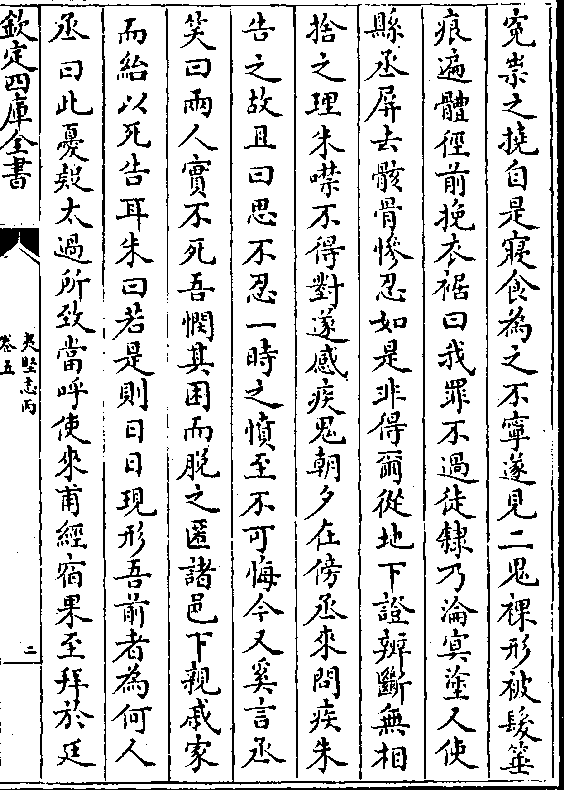 寃祟之撓自是寢食為之不寧遂見二鬼裸形被髮箠
痕遍體徑前挽衣裾曰我罪不過徒隸乃淪㝠塗又使
縣丞屏去骸骨慘忍如是非得爾從地下證辨斷無相
捨之理朱噤不得對遂感疾鬼朝夕在傍丞來問疾朱
告之故且曰思不忍一時之憤至不可悔今又奚言丞
笑曰兩人實不死吾憫其困而脱之匿諸邑下親戚家
而紿以死告耳朱曰若是則日日現形吾前者為何人
丞曰此憂疑太過所致當呼使來甫經宿果至拜於廷
欽定四庫全書
夷堅志丙
卷五
二